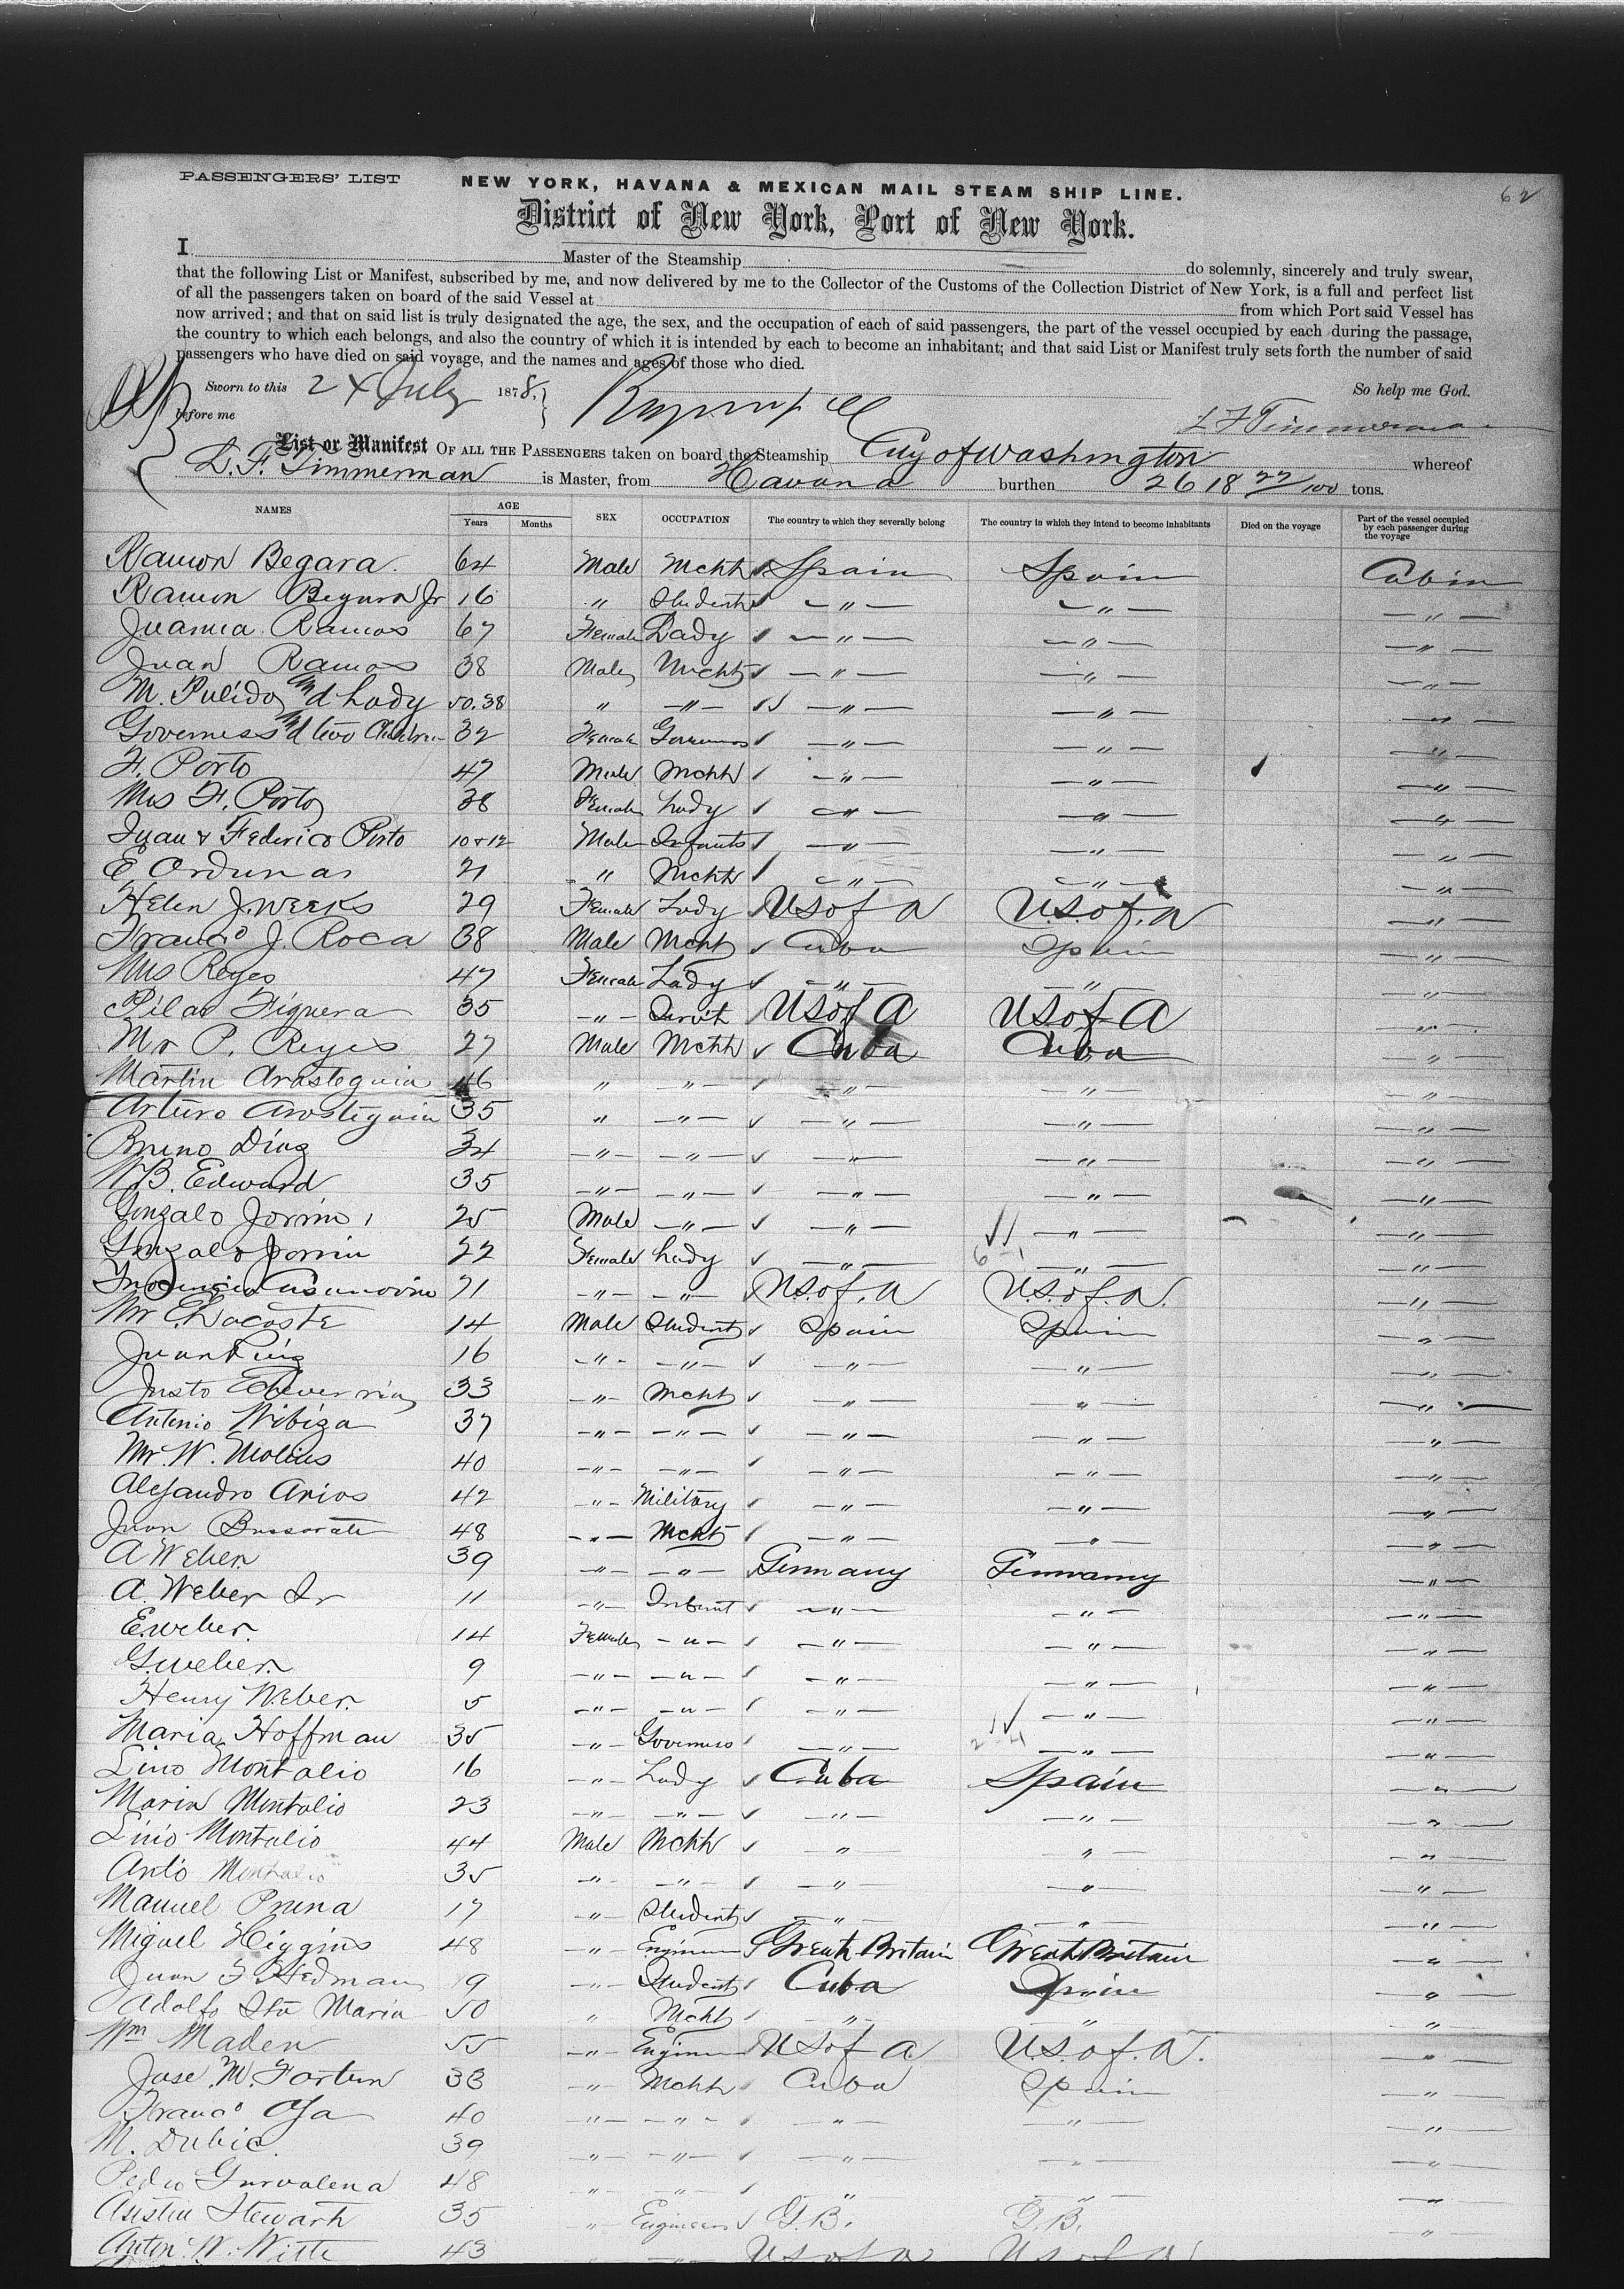 PASSENGERS' LIST
NEW YORK, HAVANA & MEXICAN MAIL STEAM SHIP LINE.
62
District of New York, Port of New York.
I Master of the Steamship do solemnly, sincerely and truly swear,
that the following List or Manifest, subscribed by me, and now delivered by me to the Collector of the Customs of the Collection District of New York, is a full and perfect list
of all the passengers taken on board of the said Vessel at from which Port said Vessel has
now arrived; and that on said list is truly designated the age, the sex, and the occupation of each of said passengers, the part of the vessel occupied by each during the passage,
the country to which each belongs, and also the country of which it is intended by each to become an inhabitant; and that said List or Manifest truly sets forth the number of said
passengers who have died on said voyage, and the names and ages of those who died.
Sworn to this 24 July 1878, So help me God.
before me
L F Timmerman
List or Manifest OF ALL THE PASSENGERS taken on board the Steamship City of Washington whereof
L. F. Timmerman is Master, from Havana burthen 2618 22/100 tons.
NAMES AGE Years Months SEX OCCUPATION The country to which they severally belong The country in which they intend to become inhabitants Died on the voyage Part of the vessel occupied by each passenger during the voyage
Ramon Begara. 64 Male Mcht Spain Spain Cabin
Ramon Begara Jr 16 " Student " " "
Juanna Ramos 67 Female Lady " " "
Juan Ramos 38 Male Mcht " " "
M. Pulido & Lady 50.38 " " " " "
Governess & two Children 32 Female Governess " " "
F. Porto 47 Male Mcht " " "
Mrs F. Porto 38 Female Lady " " "
Juan & Federico Porto 10 & 12 Male Infants " " "
E Ordunas 21 " Mcht " " "
Helen J. Weeks 29 Female Lady U S of A U.S. of. A "
Franco J. Roca 38 Male Mcht Cuba Spain "
Mrs Reyes 47 Female Lady " " "
Pilar Figuera 35 " Servt U S of A U S of A "
Mr P. Reyes 27 Male Mcht Cuba Cuba "
Martin Arosteguia 46 " " " " "
Arturo Arosteguia 35 " " " " "
Bruno Diaz 34 " " " " "
W B. Edward 35 " " " " "
Gonzalo Jorrin 25 Male " " " "
Gonzalo Jorrin 22 Female Lady " " "
21 " " U.S. of. A U.S. of. A. "
Mr E. Lacoste 14 Male Student Spain Spain "
Juan Puig 16 " " " " "
Justo Echeverria 33 " Mcht " " "
Antonio Wibiza 37 " " " " "
Mr. W. Molius 40 " " " " "
Alejandro Arios 42 " Military " " "
Juan 48 " Mcht " " "
A Weber 39 " " Germany Germany "
A. Weber Jr 11 " Infant " " "
E. Weber. 14 Female " " " "
G. Weber. 9 " " " " "
Henry Weber. 5 " " " " "
Maria Hoffman 35 " Governess " " "
Lino Montalio 16 " Lady Cuba Spain "
Maria Montalio 23 " " " " "
Lino Montalio 44 Male Mcht " " "
Anto Montalio 35 " " " " "
Manuel Pruna 17 " Student " " "
Miguel Higgins 48 " Engineer Great Britain Great Britain "
Juan F Hedman 19 " Student Cuba Spain "
Adolfo Sta Maria 50 " Mcht " " "
Wm Maden 55 " Engineer U S of A U.S. of. A. "
Jose. M. Fortun 38 " Mcht Cuba Spain "
Franco Oja 40 " " " " "
M. Dubic. 39 " " " " "
Pedro 48 " " " " "
Austin Stewart 35 " Engineer G. B. G. B. "
Anton. W. Witte 43 " " U S of A U S of A